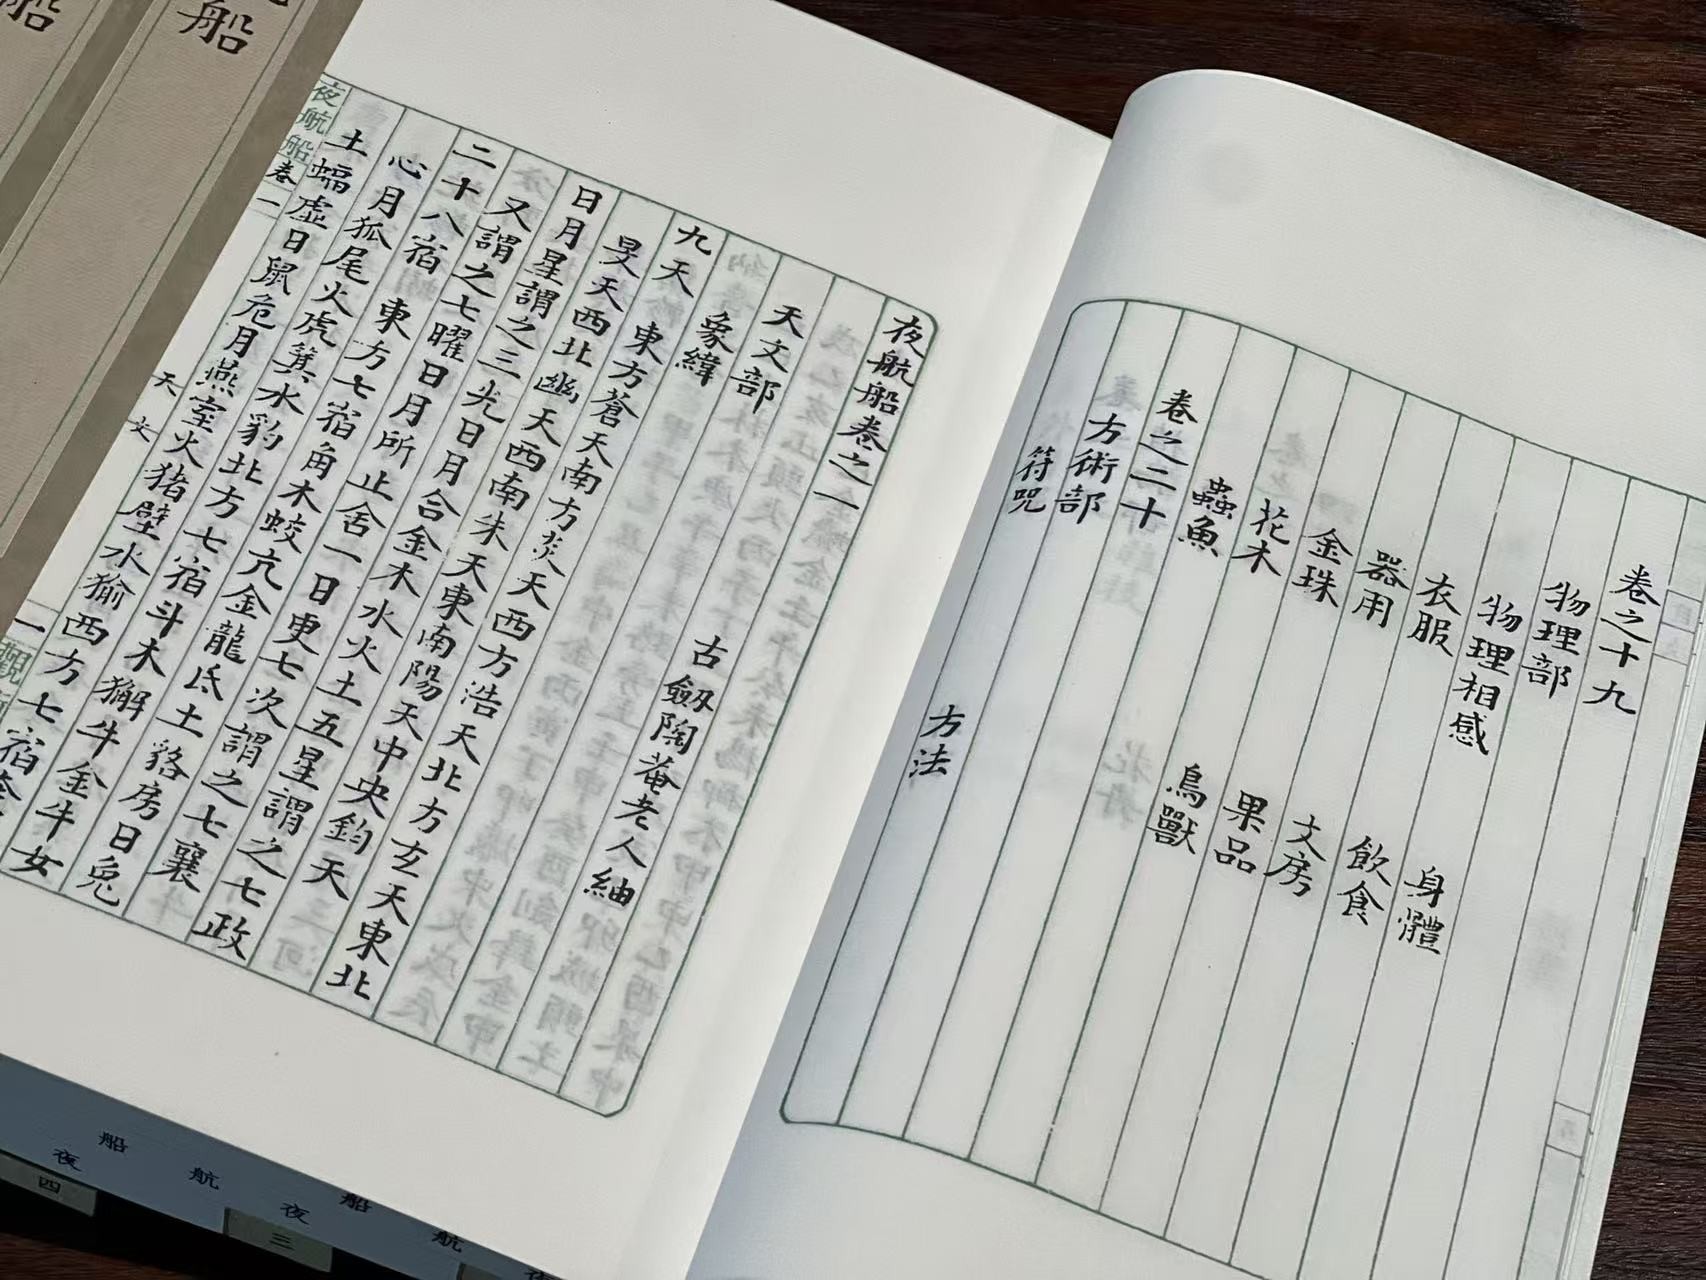 卷之十九
物理部
物理相感 身體
衣服 飲食
器用 文房
金珠 果品
花木 鳥獸
蟲魚
卷之二十
方術部
符咒 方法
夜航船卷之一
古劔陶菴老人紬
天文部
象緯
九天 東方蒼天南方炎天西方浩天北方玄天東北
旻天西北幽天西南朱天東南陽天中央鈞天
日月星謂之三光日月合金木水火土五星謂之七政
又謂之七曜日月所止舍一日更七次謂之七襄
二十八宿 東方七宿角木蛟亢金龍氐土貉房日兔
心月狐尾火虎箕水豹北方七宿斗木獬牛金牛女
土蝠虛日鼠危月燕室火猪壁水㺄西方七宿奎
夜航船 卷一 天文 一 觀
船
船
夜航船
三
夜船
四